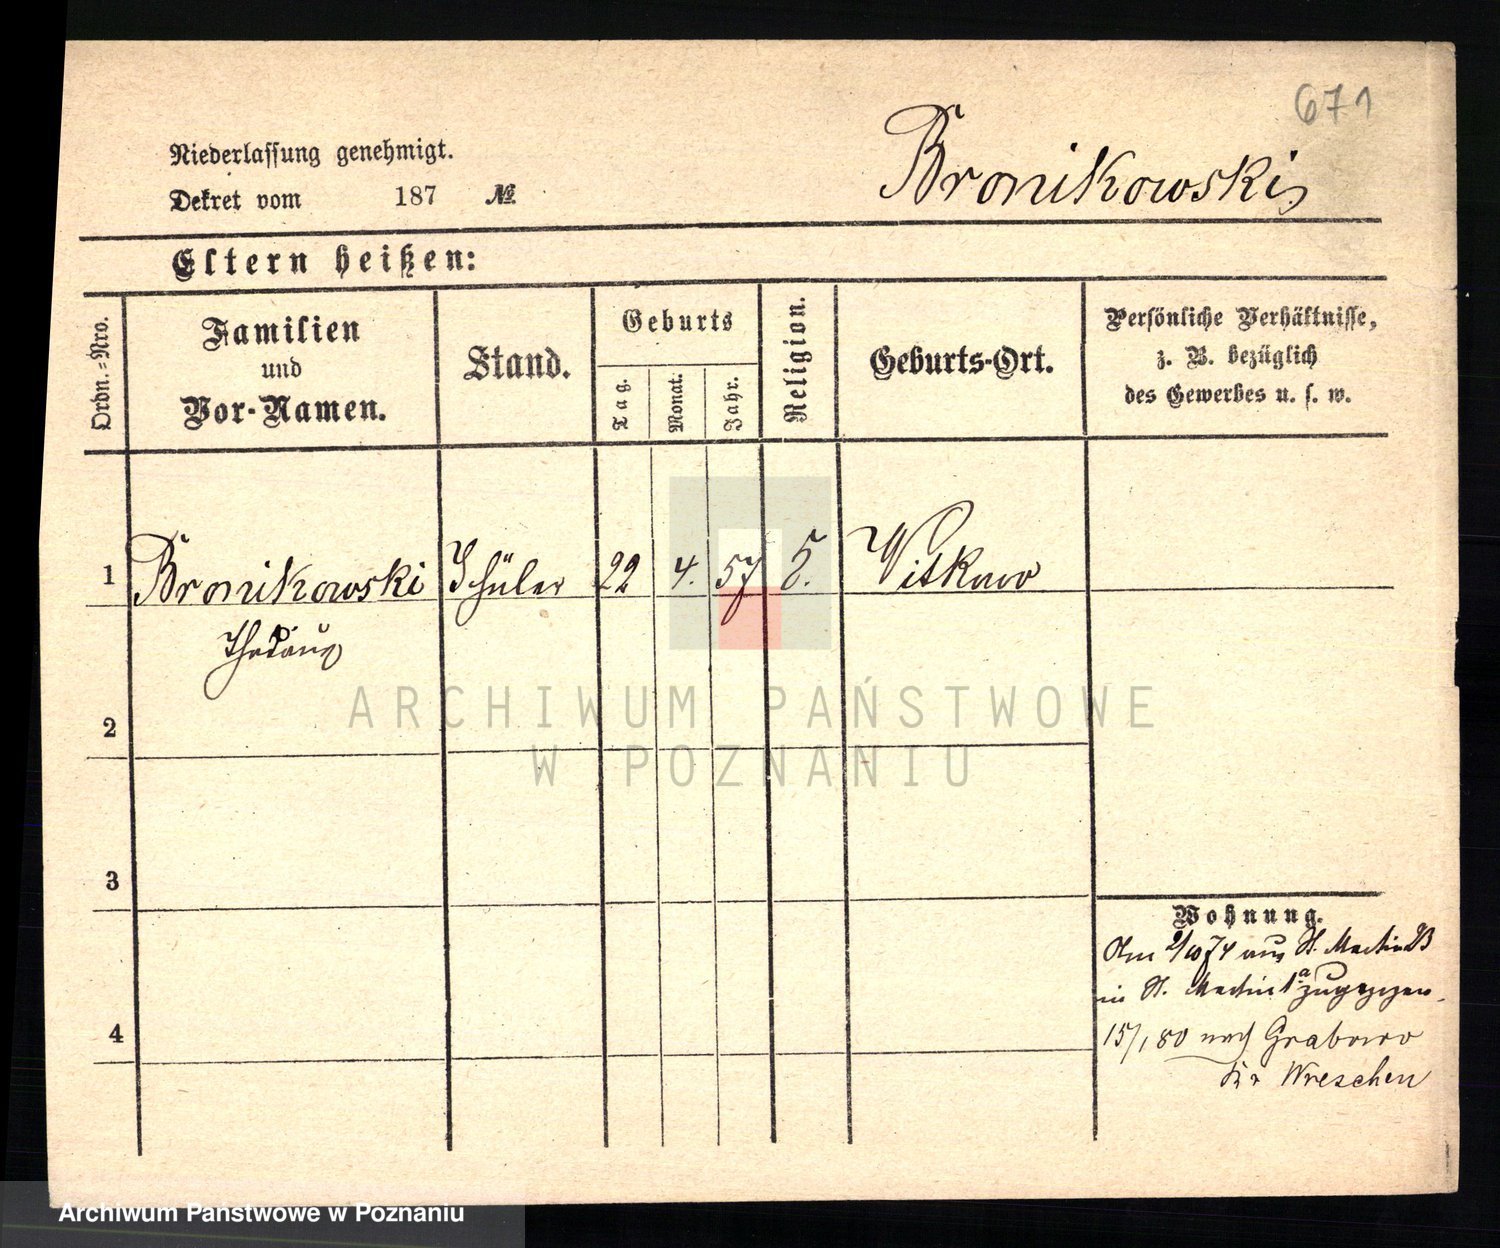 671
Niederlassung genehmigt.
Dekret vom 187 №
Bronikowski
Eltern heißen:
Ordn.-Nro.
Familien
und
Vor-Namen.
Stand.
Geburts
Tag.
Monat.
Jahr.
Religion.
Geburts-Ort.
Persönliche Verhältnisse,
z. B. bezüglich
des Gewerbes u. s. w.
1 Bronikowski Schüler 22 4. 57 Witkowo
Thadäus
2
3
4
Wohnung.
Am 2/10 74 aus St. Martin
in St. Martin zugezogen.
15/1 80 nach Grabowo
Kr Wreschen
ARCHIWUM PAŃSTWOWE
W POZNANIU
Archiwum Państwowe w Poznaniu